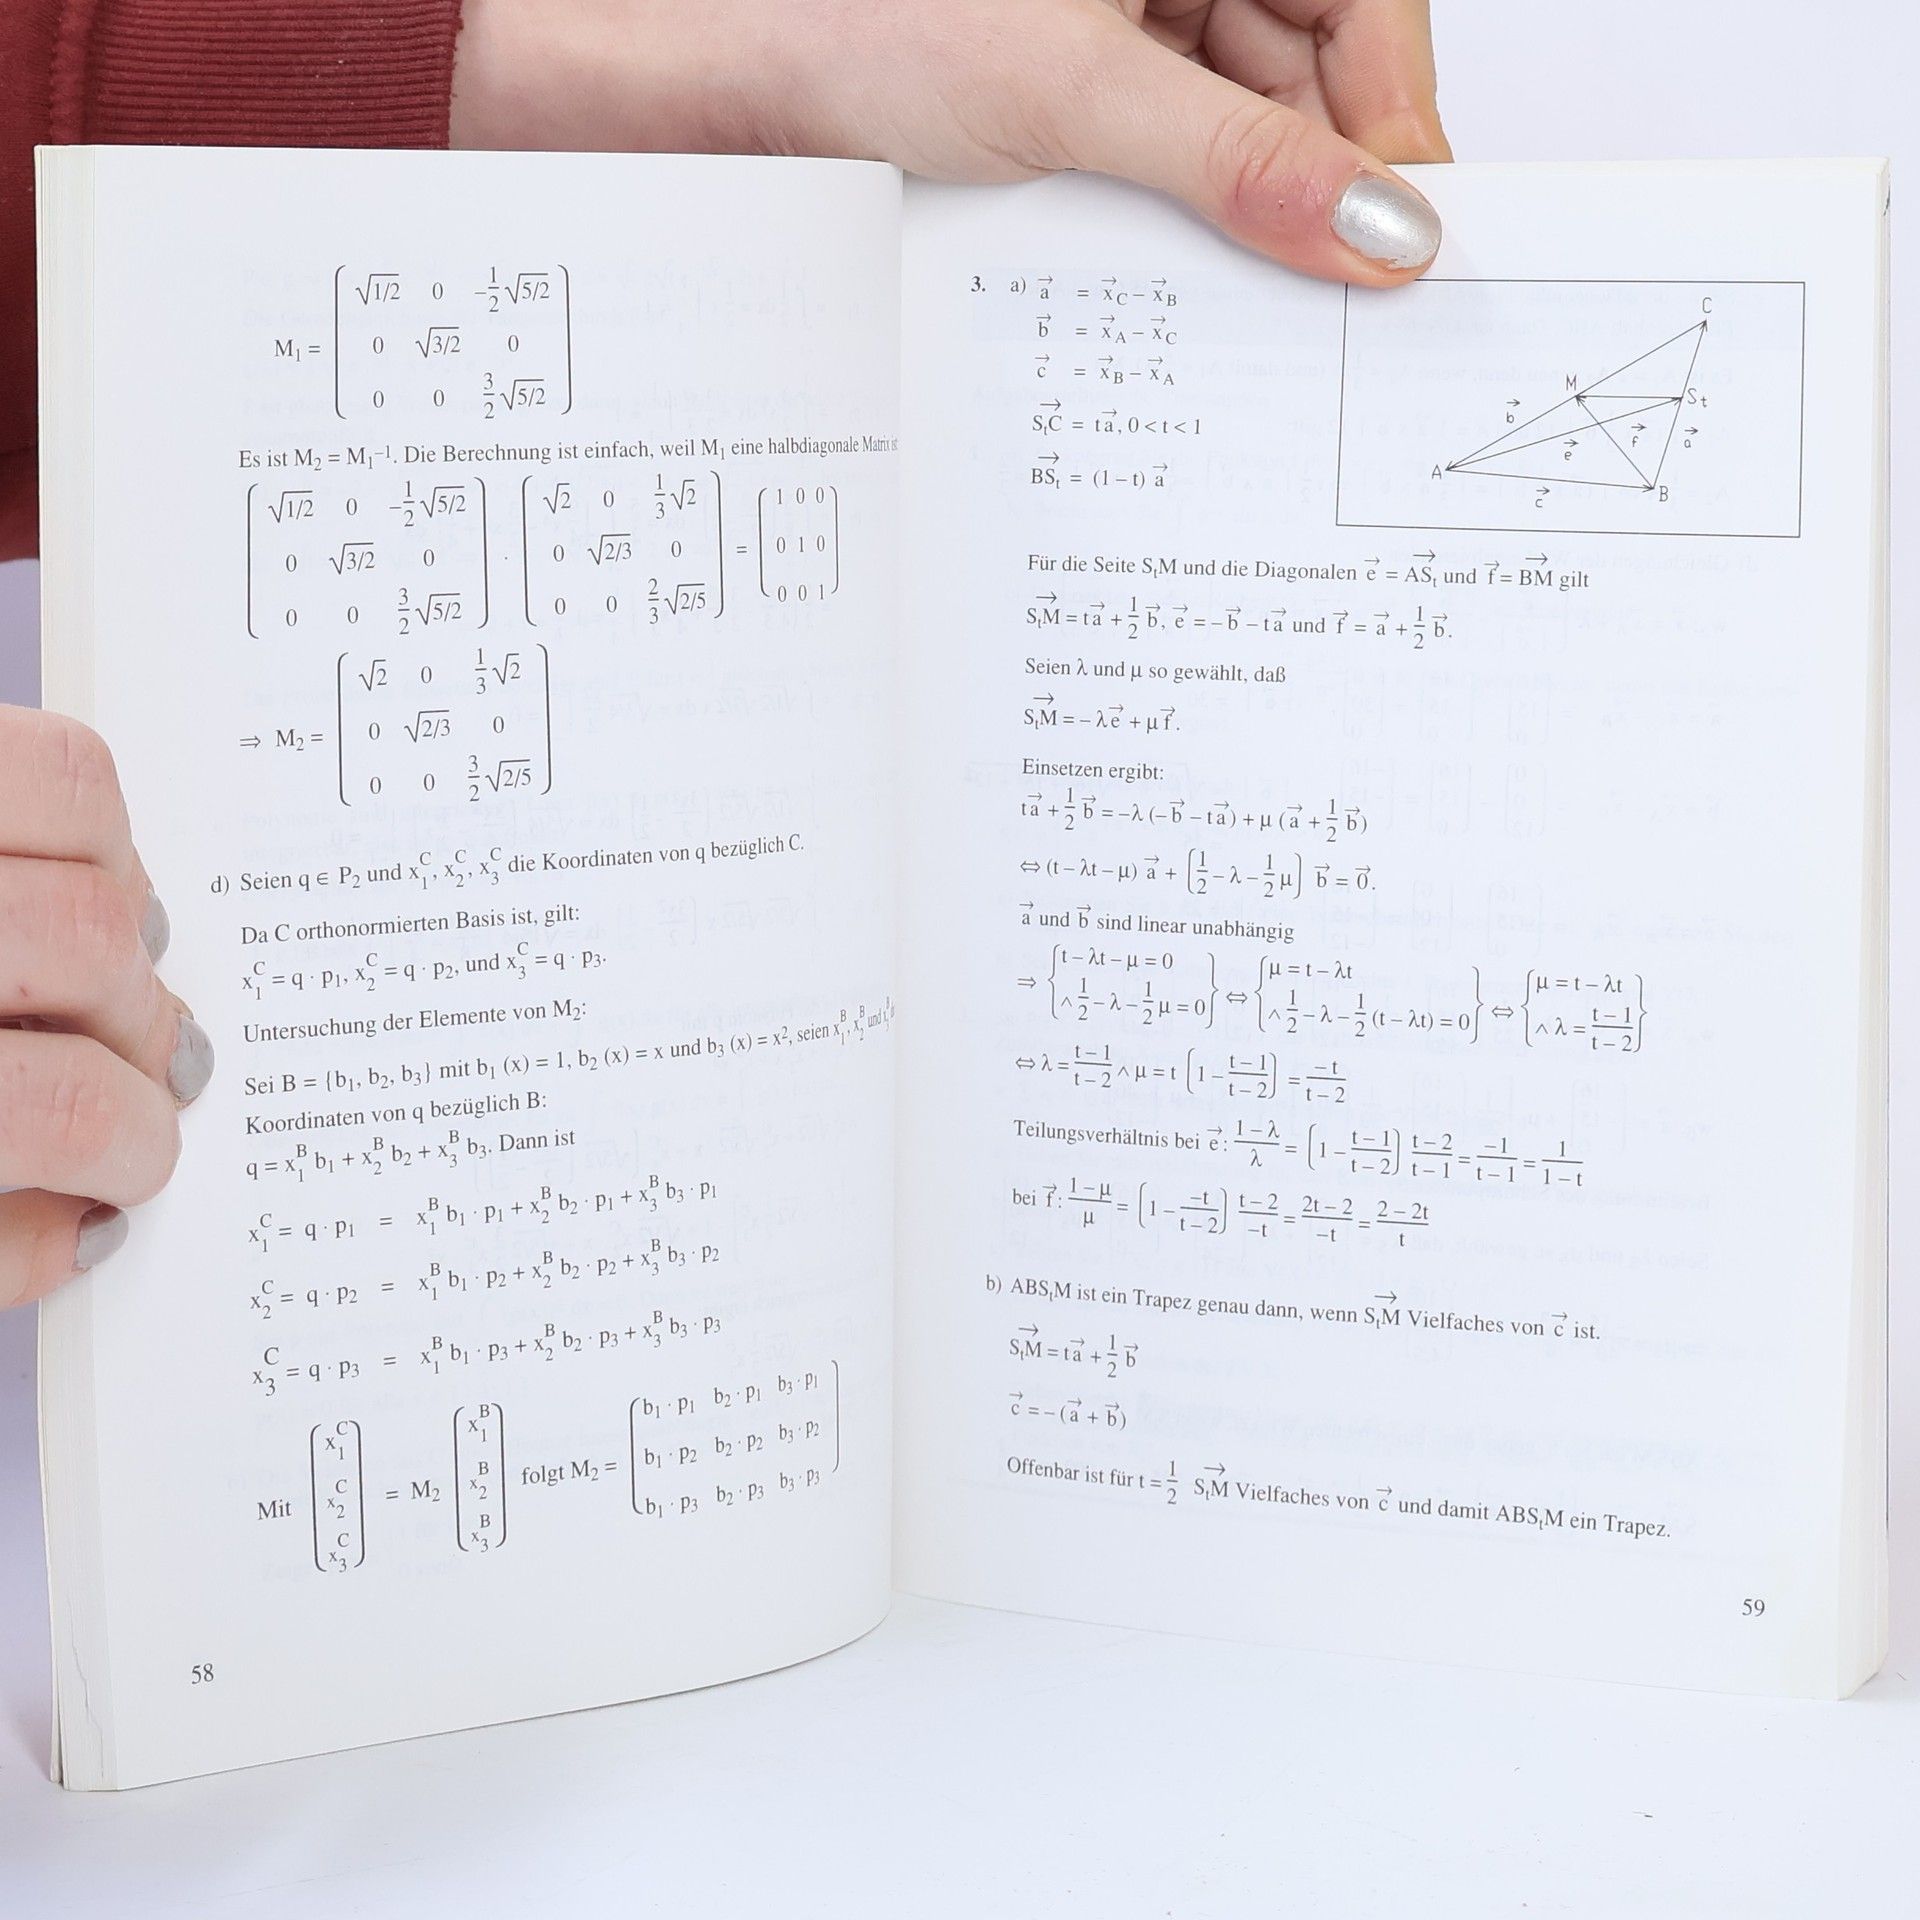 M₁ = ( √1/2 0 -1/2 √5/2
0 √3/2 0
0 0 3/2 √5/2 )
Es ist M₂ = M₁⁻¹. Die Berechnung ist einfach, weil M₁ eine halbdiagonale Matrix ist
( √1/2 0 -1/2 √5/2 ; 0 √3/2 0 ; 0 0 3/2 √5/2 ) · ( √2 0 1/3 √2 ; 0 √2/3 0 ; 0 0 2/3 √2/5 ) = ( 1 0 0 ; 0 1 0 ; 0 0 1 )
⇒ M₂ = ( √2 0 1/3 √2
0 √2/3 0
0 0 3/2 √2/5 )
d) Seien q ∈ P₂ und x₁ᶜ, x₂ᶜ, x₃ᶜ die Koordinaten von q bezüglich C.
Da C orthonormierten Basis ist, gilt:
x₁ᶜ = q · p₁, x₂ᶜ = q · p₂, und x₃ᶜ = q · p₃.
Untersuchung der Elemente von M₂:
Sei B = {b₁, b₂, b₃} mit b₁ (x) = 1, b₂ (x) = x und b₃ (x) = x², seien x₁ᴮ, x₂ᴮ und x₃ᴮ
Koordinaten von q bezüglich B:
q = x₁ᴮ b₁ + x₂ᴮ b₂ + x₃ᴮ b₃. Dann ist
x₁ᶜ = q · p₁ = x₁ᴮ b₁ · p₁ + x₂ᴮ b₂ · p₁ + x₃ᴮ b₃ · p₁
x₂ᶜ = q · p₂ = x₁ᴮ b₁ · p₂ + x₂ᴮ b₂ · p₂ + x₃ᴮ b₃ · p₂
x₃ᶜ = q · p₃ = x₁ᴮ b₁ · p₃ + x₂ᴮ b₂ · p₃ + x₃ᴮ b₃ · p₃
Mit ( x₁ᶜ ; x₂ᶜ ; x₃ᶜ ) = M₂ ( x₁ᴮ ; x₂ᴮ ; x₃ᴮ ) folgt M₂ = ( b₁ · p₁ b₂ · p₁ b₃ · p₁ ; b₁ · p₂ b₂ · p₂ b₃ · p₂ ; b₁ · p₃ b₂ · p₃ b₃ · p₃ )
58
3. a) a⃗ = x⃗_C – x⃗_B
b⃗ = x⃗_A – x⃗_C
c⃗ = x⃗_B – x⃗_A
S_tC→ = t a⃗, 0 < t < 1
BS_t→ = (1 – t) a⃗
C
M
S_t
b⃗
f⃗
a⃗
e⃗
A
B
c⃗
Für die Seite S_tM und die Diagonalen e⃗ = AS_t→ und f⃗ = BM→ gilt
S_tM→ = t a⃗ + 1/2 b⃗, e⃗ = – b⃗ – t a⃗ und f⃗ = a⃗ + 1/2 b⃗.
Seien λ und μ so gewählt, daß
S_tM→ = – λ e⃗ + μ f⃗.
Einsetzen ergibt:
t a⃗ + 1/2 b⃗ = –λ (–b⃗ – t a⃗) + μ (a⃗ + 1/2 b⃗)
⇔ (t – λt – μ) a⃗ + (1/2 – λ – 1/2 μ) b⃗ = 0⃗.
a⃗ und b⃗ sind linear unabhängig
⇒ { t – λt – μ = 0 ∧ 1/2 – λ – 1/2 μ = 0 } ⇔ { μ = t – λt ∧ 1/2 – λ – 1/2 (t – λt) = 0 } ⇔ { μ = t – λt ∧ λ = (t – 1)/(t – 2) }
⇔ λ = (t – 1)/(t – 2) ∧ μ = t (1 – (t – 1)/(t – 2)) = –t/(t – 2)
Teilungsverhältnis bei e⃗: (1 – λ)/λ = (1 – (t – 1)/(t – 2)) (t – 2)/(t – 1) = –1/(t – 1) = 1/(1 – t)
bei f⃗: (1 – μ)/μ = (1 – –t/(t – 2)) (t – 2)/–t = (2t – 2)/–t = (2 – 2t)/t
b) ABS_tM ist ein Trapez genau dann, wenn S_tM→ Vielfaches von c⃗ ist.
S_tM→ = t a⃗ + 1/2 b⃗
c⃗ = – (a⃗ + b⃗)
Offenbar ist für t = 1/2 S_tM→ Vielfaches von c⃗ und damit ABS_tM ein Trapez.
59